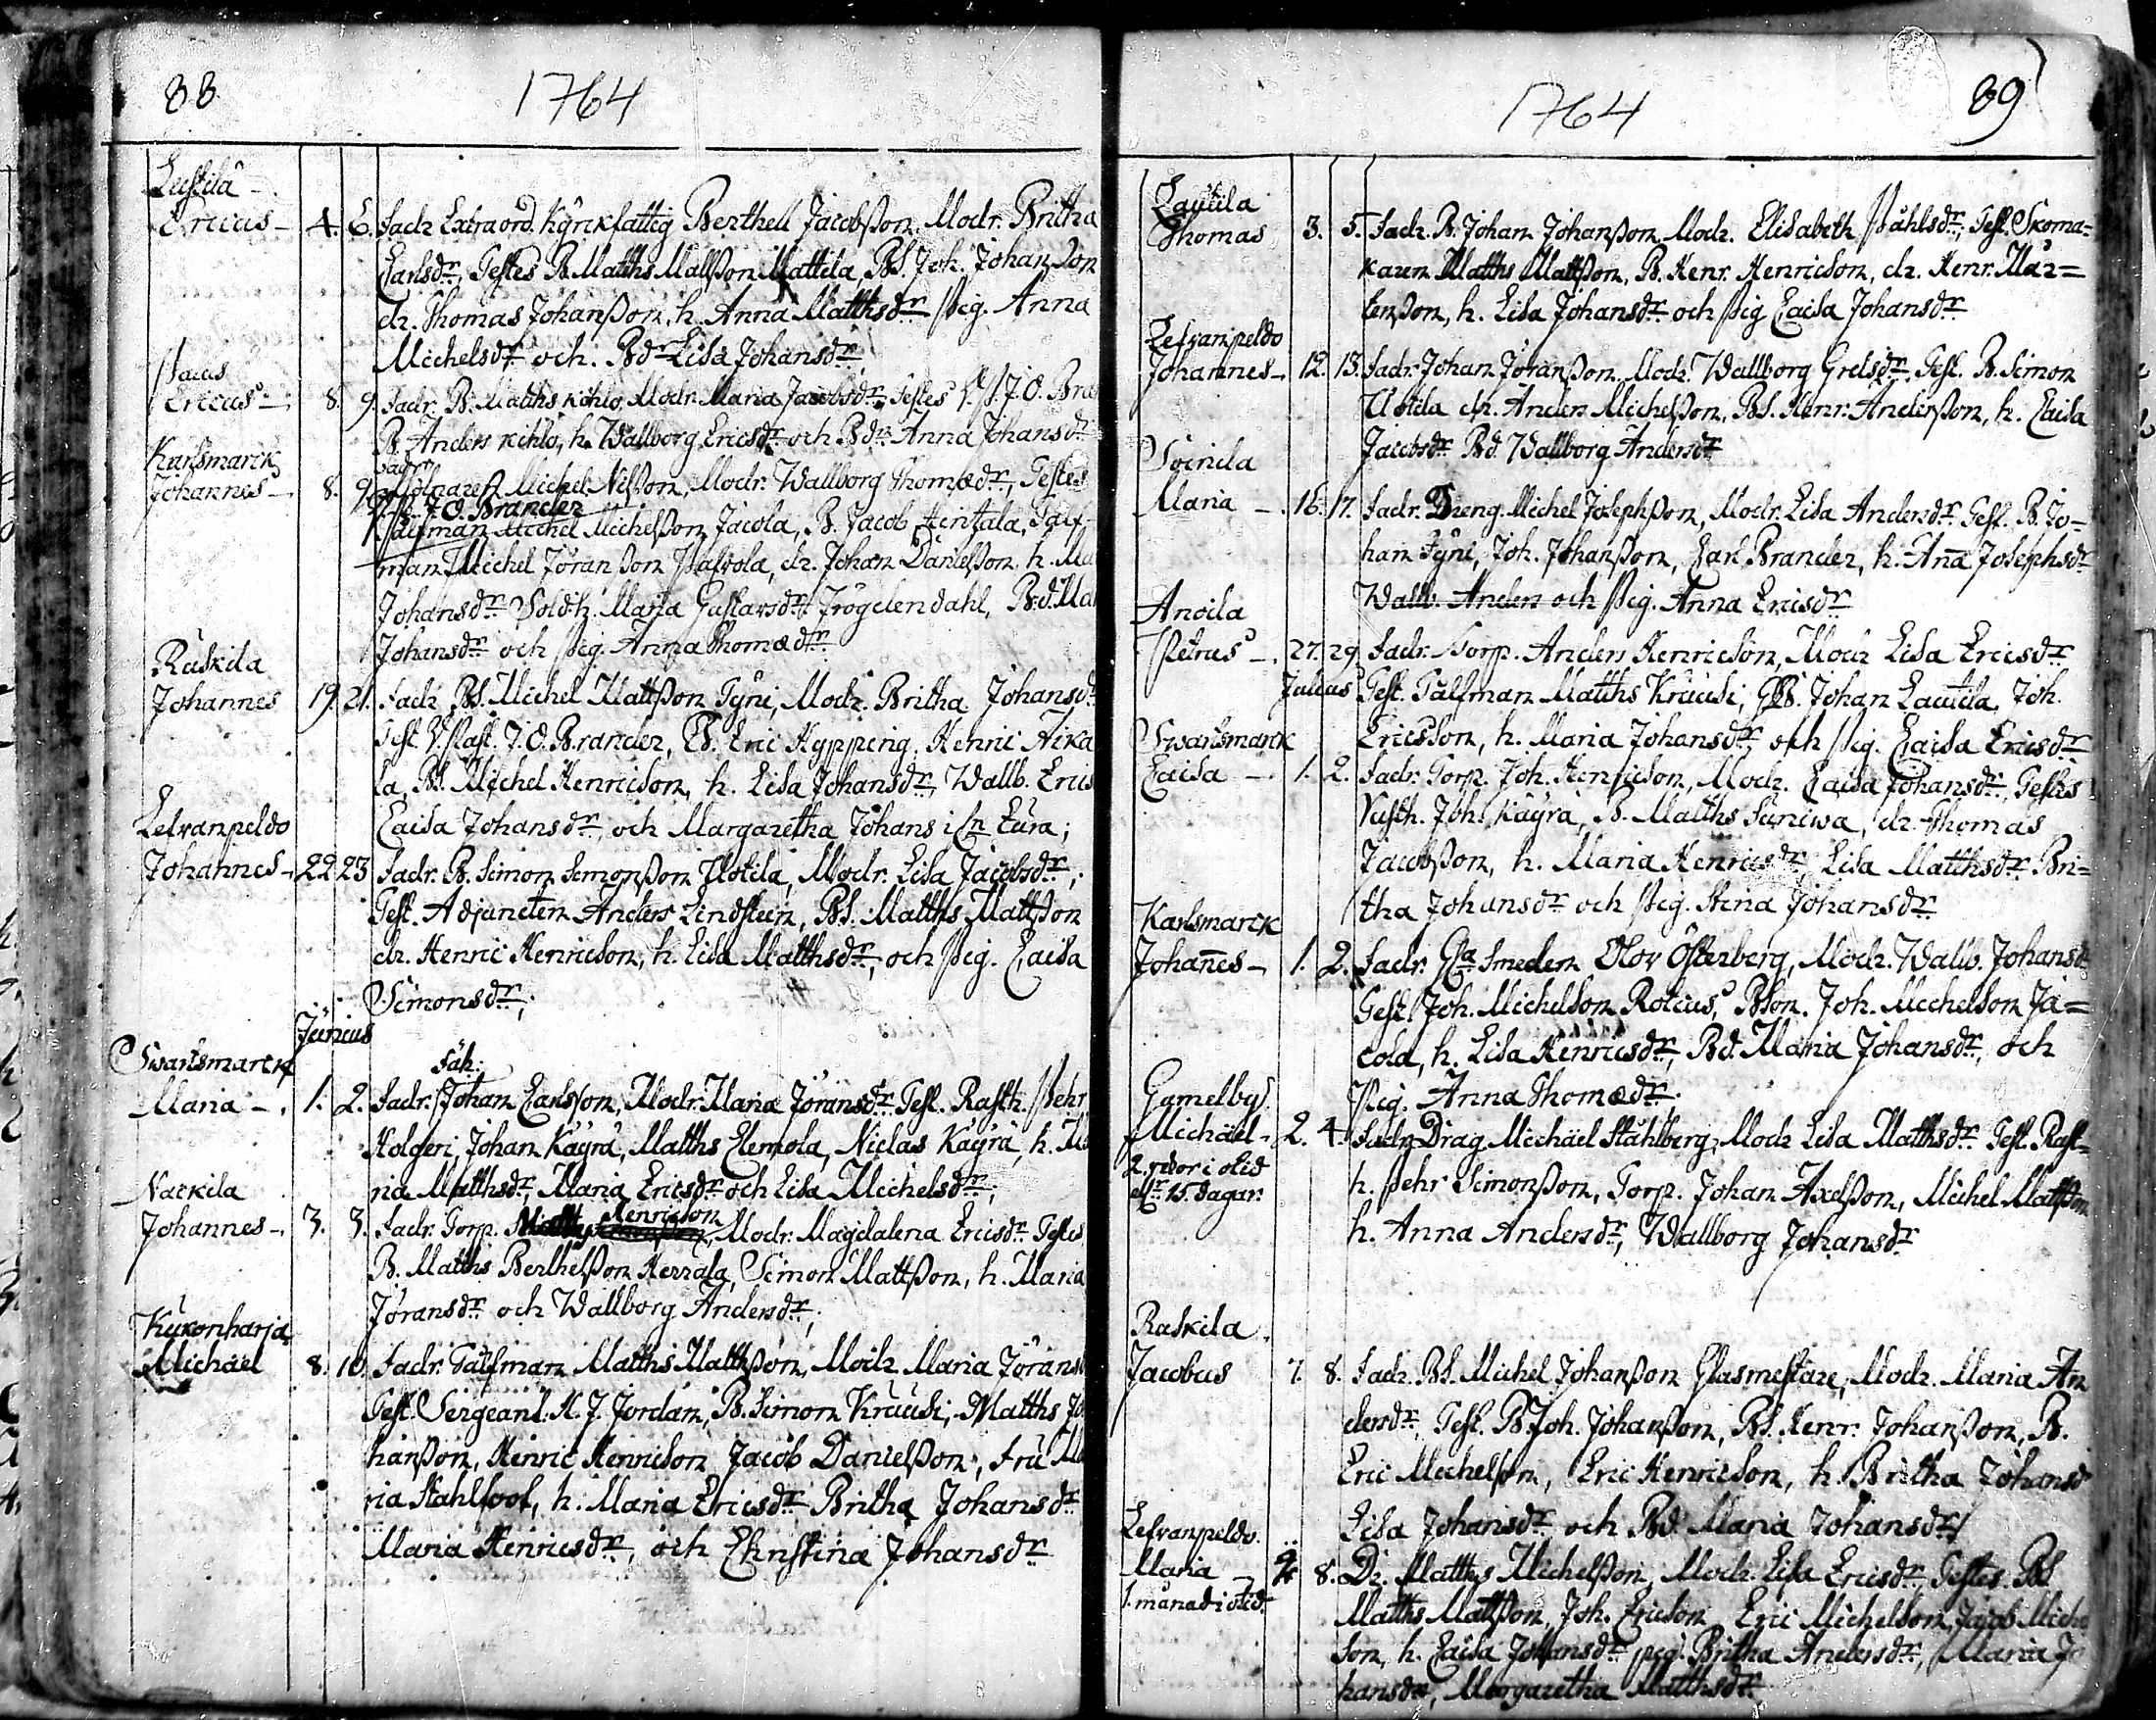 88
1764
Lustila
Ericus - 4. 6. Fadr Extraord. Kyrkfattig Berthell Jacobsson Modr. Britha
Carlsdr, Testes B. Matths Mattsson Mattila, BS. Joh. Johansson
dr. Thomas Johansson, h. Anna Matthsdr Pig. Anna
Michelsdr och. Bdr Lisa Johansdr
Ericus - 8. 9. Fadr. B. Matths Kihlo, Modr Maria Jacobsdr, Testes J. O.
B. Anders Kihlo, h. Wallborg Ericsdr och Bdr Anna Johansdr
Karlsmarck
Johannes - 8. 9. Michel Nilsson, Modr. Wallborg Thomædr, Testes
J. O. Brander
Michel Michelsson Jacola, B. Jacob Hintzala, Tälf-
man Michel Jöransson Pasvola, dr. Johan Danielsson h.
Johansdr Sold.h. Maria Gustavsdr Frögelendahl, B:d.
Johansdr och Pig. Anna Thomædr
Ruskila
Johannes 19. 21. Fadr BS. Michel Mattsson Tyni, Modr. Britha Johansdr
Test. J. O. Brander, B. Eric Hypping. Henric Aika
la, BS. Michel Henricson, h. Lisa Johansdr, Wallb. Erics
Caisa Johansdr, och Margaretha Johans i Eura;
Lefvanpeldo
Johannes - 22 23 Fadr. B. Simon Simonsson Uotila, Modr. Lisa Jacobsdr;
Test. Adjuncten Anders Lindsteen, BS. Matths Mattsson
dr. Henric Henricson, h. Lisa Matthsdr, och Pig. Caisa
Simonsdr;
Junius
Swartsmarck
Maria -. 1. 2. Fadr. Johan Carlsson, Modr. Maria Jöransdr Test. Rusth. Pehr
Holgeri, Johan Käyrä, Matths Clemola, Niclas Käyrä, h. Ma
ria Matthsdr, Maria Ericsdr och Lisa Michelsdr;
Nackila
Johannes -. 3. 3. Fadr. Torp. Matths Henricson, Modr. Magdalena Ericsdr Testes
B. Matths Berthelsson Herrala, Simon Mattsson, h. Maria
Jöransdr och Wallborg Andersdr;
Kukonharja
Michael 8. 10. Fadr. Tälfman Matths Matthsson, Modr. Maria Jörans
Test. Sergeant. H. J. Jordan, B. Simon Kruusi, Matths Jo
hansson, Henric Henricson Jacob Danielsson, Fru Ma
ria Stahlfoot, h. Maria Ericsdr Britha Johansdr
Maria Henricsdr, och Christina Johansdr
1764
89
Lautila
Thomas 3. 5. Fadr. B. Johan Johansson Modr. Elisabeth Påhlsdr, Test. Skoma-
karen Matths Mattsson, B. Henr. Henricson, dr. Henr. Mår-
tensson, h. Lisa Johansdr och Pig Caisa Johansdr
Lefvanpeldo
Johannes -. 12. 13. Fadr. Johan Jöransson Modr. Wallborg Grelsdr. Test. B. Simon
Uotila dr. Anders Michelsson, BS. Henr. Andersson, h. Caisa
Jacobsdr Bd. Wallborg Andersdr
Soinila
Maria -. 16. 17. Fadr. Dreng Michel Josephsson, Modr. Lisa Andersdr Test. B. Jo-
han Tyni, Joh. Johansson, Carl Brander, h. Anna Josephsdr
Wallb. Anders och Pig. Anna Ericsdr
Anoila
Petrus -. 27. 29. Fadr. Torp. Anders Henricson, Modr Lisa Ericsdr
Julius
Test. Tälfman Matths Kruusi, B. Johan Lautila, Joh.
Ericsson, h. Maria Johansdr, och Pig. Caisa Ericsdr
Swartsmarck
Caisa -. 1. 2. Fadr. Torp. Joh. Henricson, Modr. Caisa Johansdr, Testes
Rusth. Joh. Käyrä, B. Matths Suniwa, dr. Thomas
Jacobsson, h. Maria Henricsdr, Lisa Matthsdr Bri-
tha Johansdr och Pig. Stina Johansdr
Karlsmarck
Johannes - 1. 2. Fadr. Smeden Olov Österberg, Modr. Wallb. Johansdr
Test. Joh. Michelson Rotius, BSon. Joh. Michelson Ja-
cola, h. Lisa Henricsdr, Bd. Maria Johansdr, och
Pig. Anna Thomædr.
Gamelby
Michäel - 2. 4. Fadr. Drag Michäel Ståhlberg, Modr Lisa Matthsdr Test. Rust-
2. veckor i otid
15. dagar.
h. Pehr Simonsson, Torp. Johan Axelsson, Michel Mattsson
h. Anna Andersdr, Wallborg Johansdr
Raskila.
Jacobus 7. 8. Fadr. BS. Michel Johansson Glasmestare, Modr. Maria An
dersdr, Test. B. Joh. Johansson, BS. Henr. Johansson, B.
Eric Michelsson, Eric Henricson, h. Britha Johansdr
Lisa Johansdr och Bd. Maria Johansdr
Lefvanpeldo.
Maria - 8. Dr. Matths Michelsson, Modr. Lisa Ericsdr, Testes. BS
1. månad i otid.
Matths Mattsson, Joh. Ericson, Eric Michelson, Jacob Michel
son, h. Caisa Johansdr, pig. Britha Andersdr, Maria Jo
hansdr, Margaretha Matthsdr